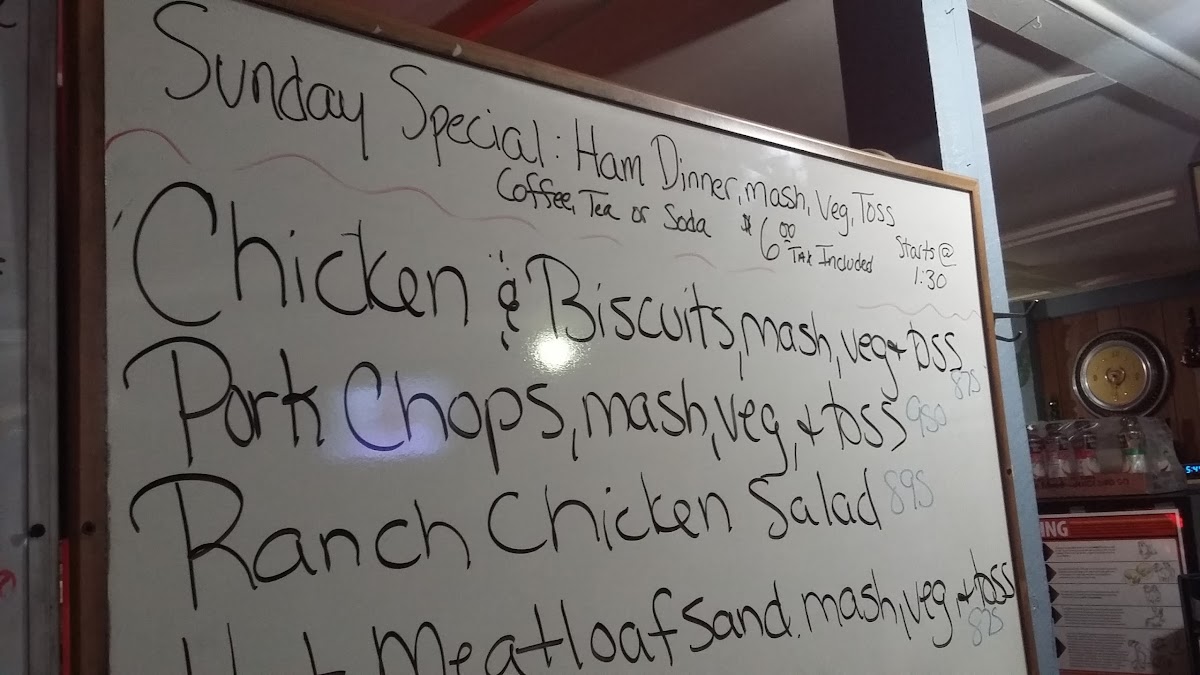 Sunday Special: Ham Dinner, mash, Veg, Toss
Coffee, Tea or Soda $6.00 Tax Included
Starts @
1:30
Chicken & Biscuits, mash, veg + toss
875
Pork Chops, mash, veg, + toss 950
Ranch Chicken Salad 895
Hot Meatloaf Sand. mash, veg, + toss
825
ING